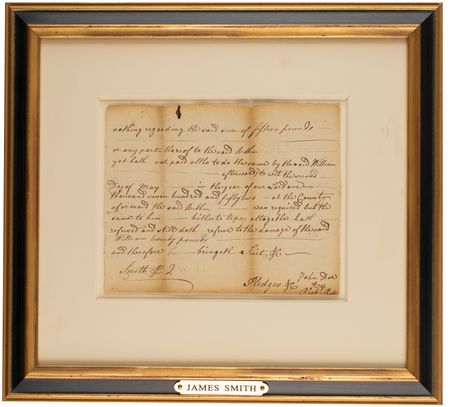 nothing regarding the said sum of fifteen pounds
or any part thereof to the said Arthur
yet hath not paid altho to do the same by the said William
afterwards to wit the second
Day of May in the year of our Lord one
thousand seven hundred and fifty two at the County
aforesaid the said Arthur was required but the
same to him hitherto to pay altogether hath
refused and still doth refuse to the damage of the said
William twenty pounds
and therefore he bringeth Suit &c
Smith
Pledges &c John Doe
&
JAMES SMITH